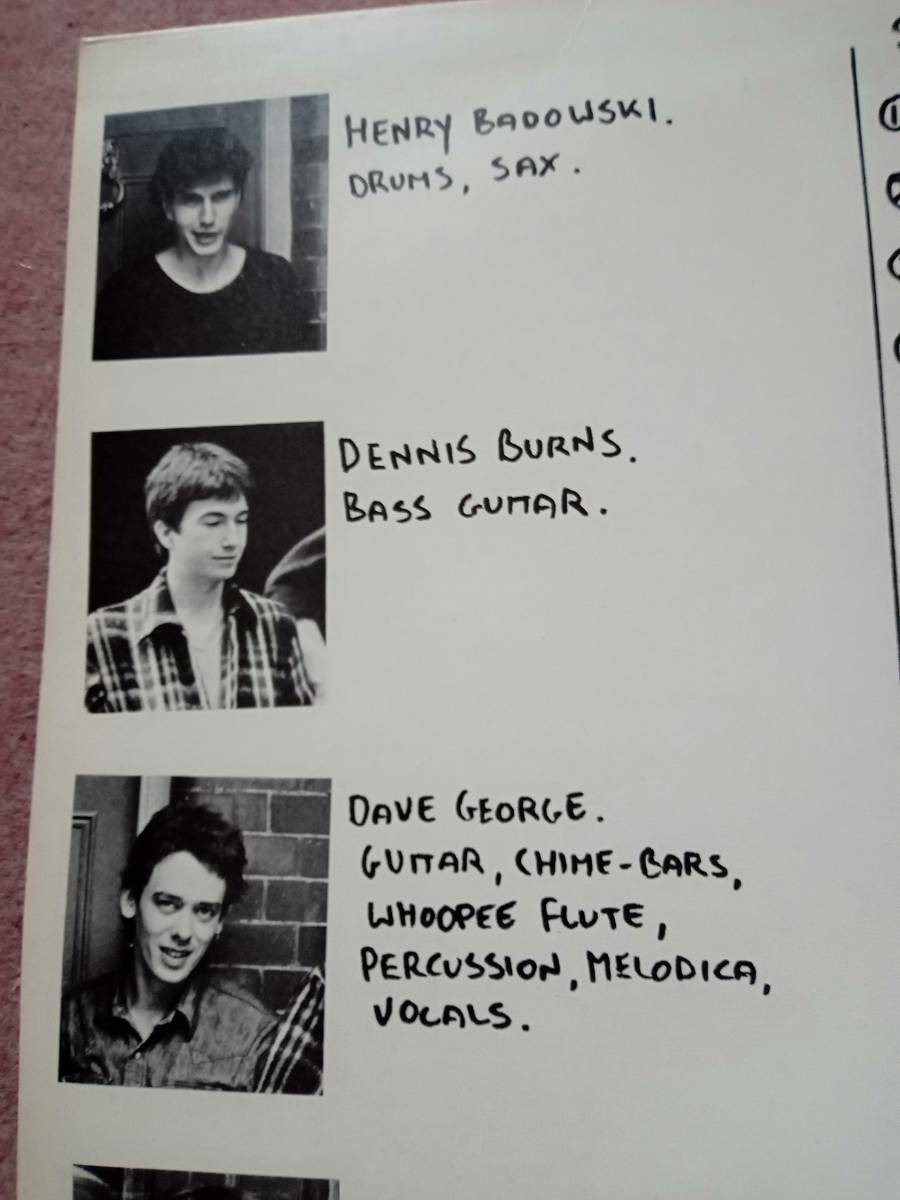 HENRY BADOWSKI.
DRUMS, SAX.
DENNIS BURNS.
BASS GUITAR.
DAVE GEORGE.
GUITAR, CHIME-BARS,
WHOOPEE FLUTE,
PERCUSSION, MELODICA,
VOCALS.